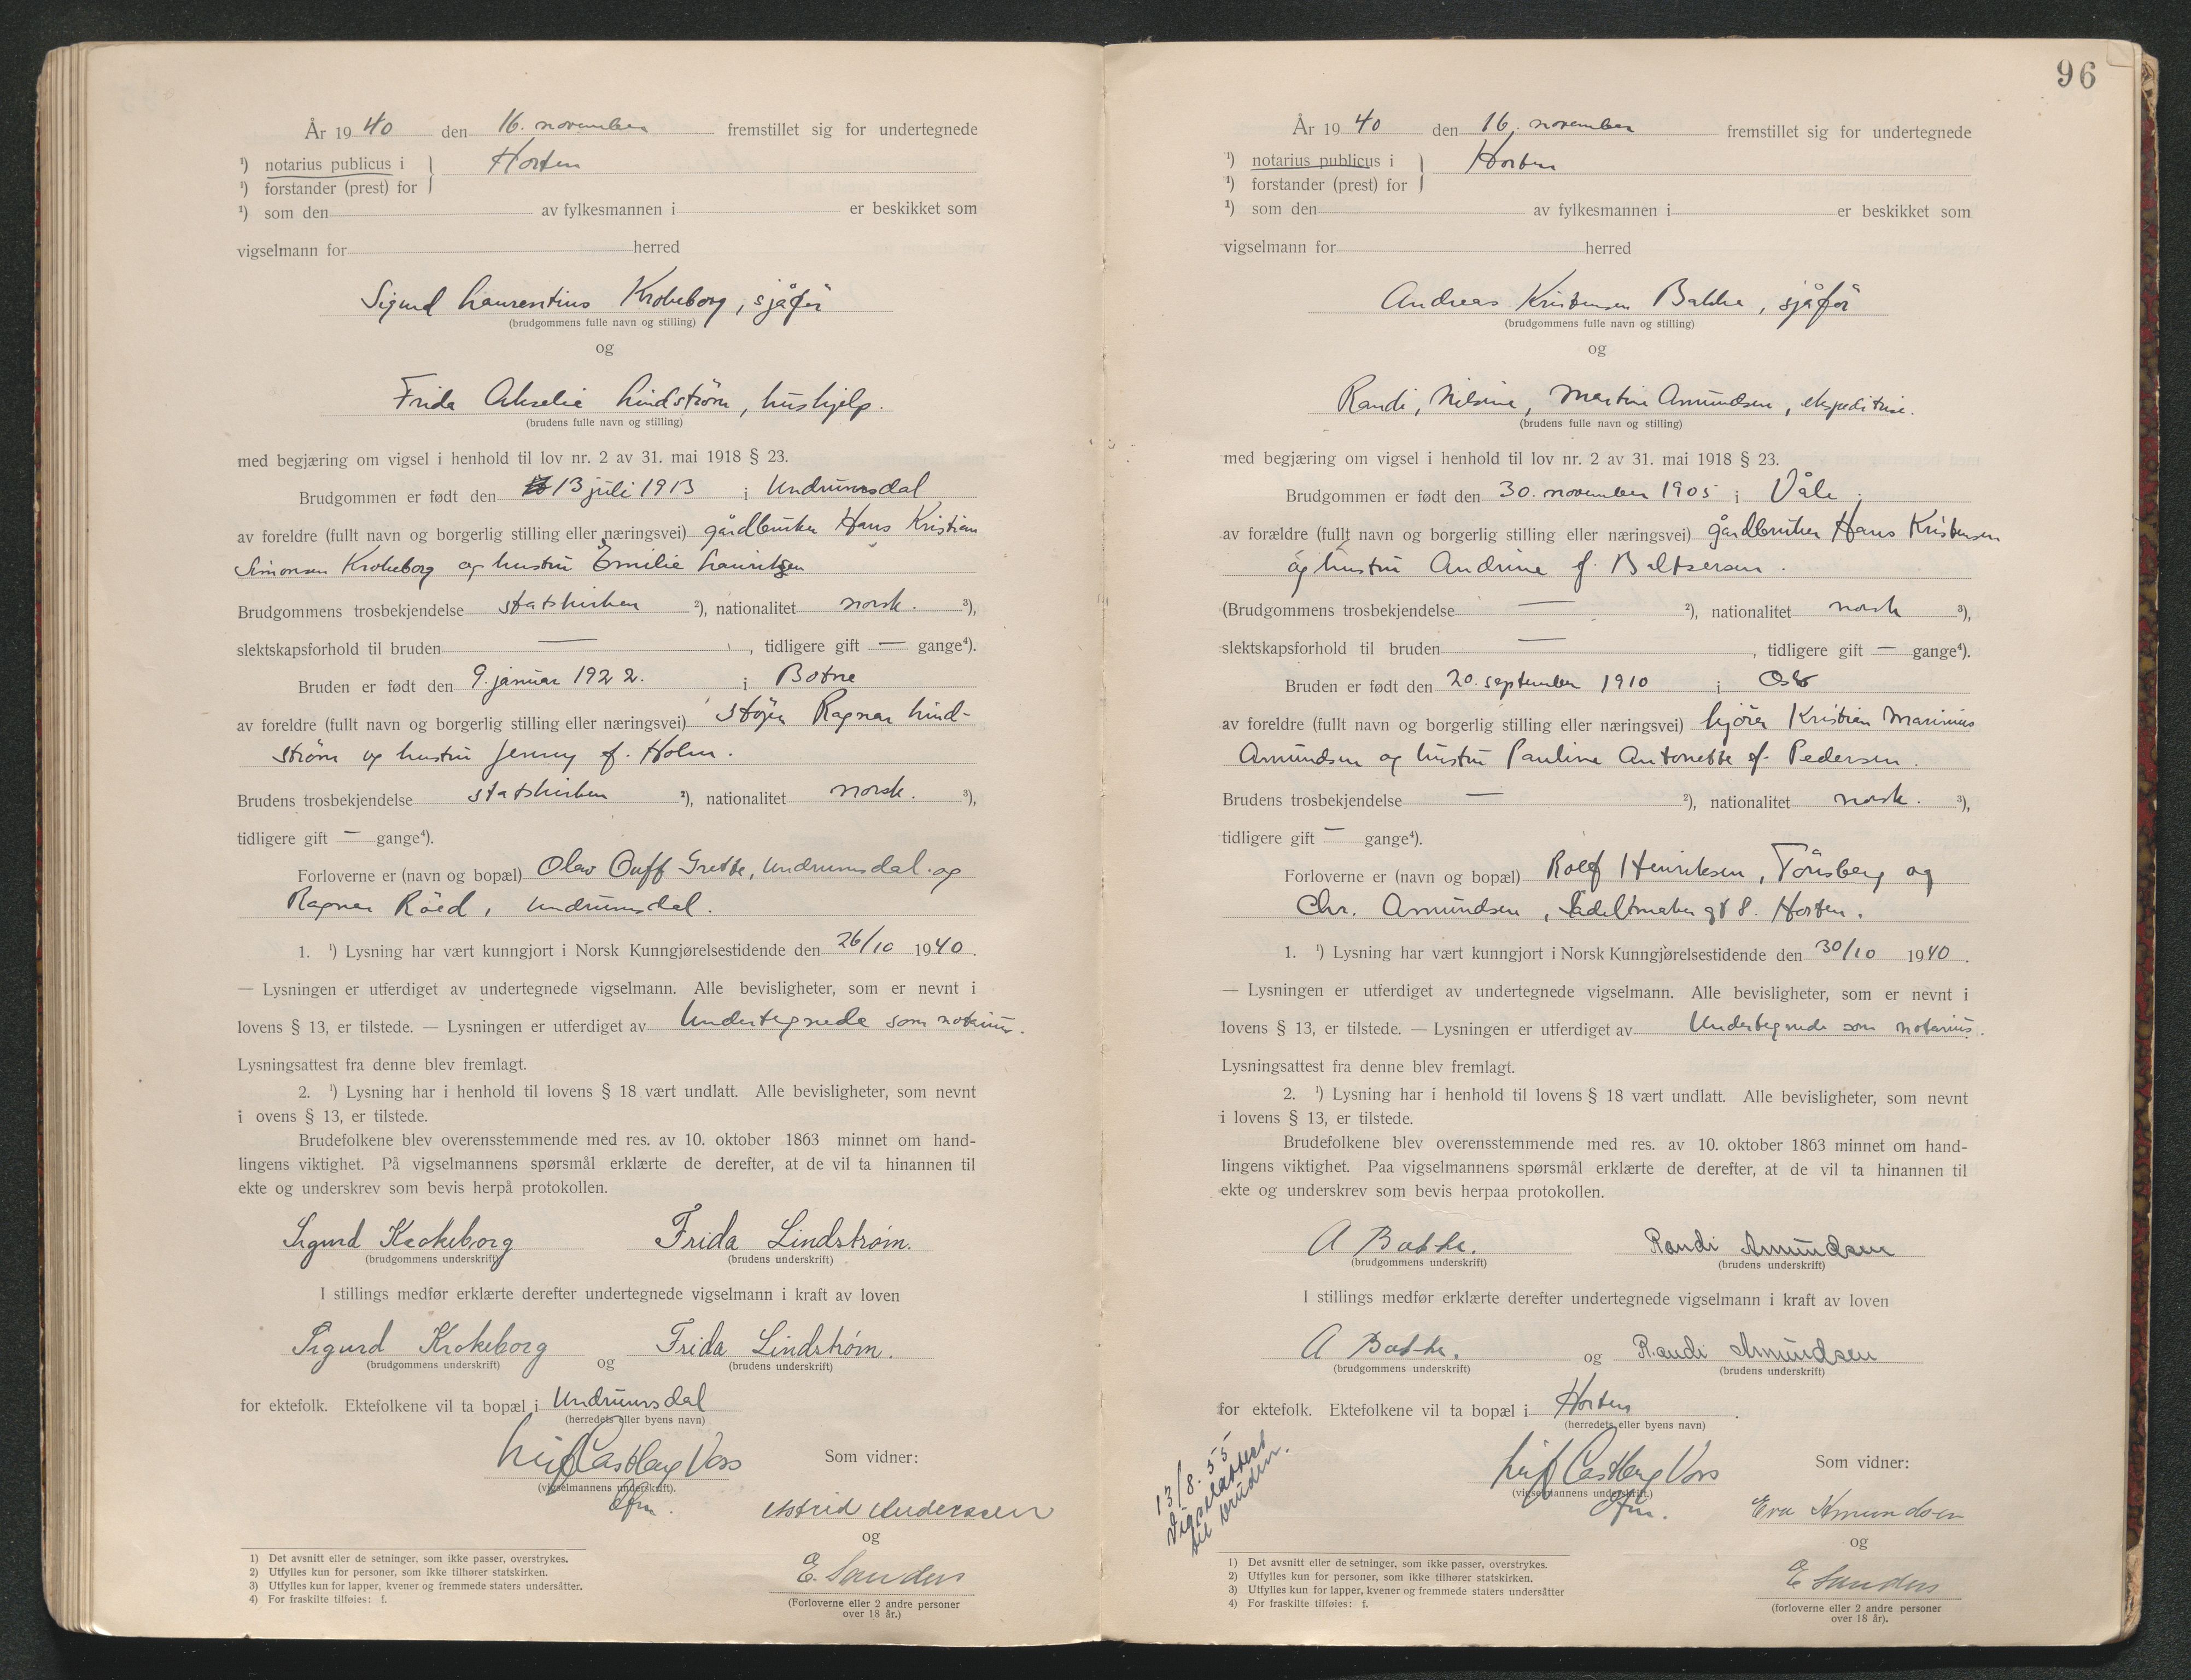 År 1940 den 16. november fremstillet sig for undertegnede
¹) notarius publicus i } Horten
¹) forstander (prest) for
¹) som den av fylkesmannen i er beskikket som
vigselmann for herred
Sigurd Laurentius Krokeborg, sjåfør
(brudgommens fulle navn og stilling)
og
Frida Akselie Lindstrøm, hushjelp.
(brudens fulle navn og stilling)
med begjæring om vigsel i henhold til lov nr. 2 av 31. mai 1918 § 23.
Brudgommen er født den 13 juli 1913 i Undrumsdal
av foreldre (fullt navn og borgerlig stilling eller næringsvei) gårdbruker Hans Kristian
Simonsen Krokeborg og hustru Emilie Lauritsen
Brudgommens trosbekjendelse statskirken ²), nationalitet norsk. ³),
slektskapsforhold til bruden — , tidligere gift — gange⁴).
Bruden er født den 9. januar 1922. i Botne
av foreldre (fullt navn og borgerlig stilling eller næringsvei) Støper Ragnar Lind-
strøm og hustru Jenny f. Holm.
Brudens trosbekjendelse statskirken ²), nationalitet norsk. ³),
tidligere gift — gange⁴).
Forloverne er (navn og bopæl) Olav Grette, Undrumsdal og
Ragnar Röed, Undrumsdal.
1. ¹) Lysning har vært kunngjort i Norsk Kunngjørelsestidende den 26/10 1940.
— Lysningen er utferdiget av undertegnede vigselmann. Alle bevisligheter, som er nevnt i
lovens § 13, er tilstede. — Lysningen er utferdiget av Undertegnede som notarius.
Lysningsattest fra denne blev fremlagt.
2. ¹) Lysning har i henhold til lovens § 18 vært undlatt. Alle bevisligheter, som nevnt
i ovens § 13, er tilstede.
Brudefolkene blev overensstemmende med res. av 10. oktober 1863 minnet om hand-
lingens viktighet. På vigselmannens spørsmål erklærte de derefter, at de vil ta hinannen til
ekte og underskrev som bevis herpå protokollen.
Sigurd Krokeborg Frida Lindstrøm.
(brudgommens underskrift) (brudens underskrift)
I stillings medfør erklærte derefter undertegnede vigselmann i kraft av loven
Sigurd Krokeborg og Frida Lindstrøm.
(brudgommens underskrift) (brudens underskrift)
for ektefolk. Ektefolkene vil ta bopæl i Undrumsdal
(herredets eller byens navn)
Leif Castberg Voss Som vidner:
(vigselmannens underskrift).
Astrid Anderssen
og
E. Sanders
(Forloverne eller 2 andre personer
over 18 år.)
1) Det avsnitt eller de setninger, som ikke passer, overstrykes.
2) Utfylles kun for personer, som ikke tilhører statskirken.
3) Utfylles kun for lapper, kvener og fremmede staters undersåtter.
4) For fraskilte tilføies: f.
96
År 1940 den 16. november fremstillet sig for undertegnede
¹) notarius publicus i } Horten
¹) forstander (prest) for
¹) som den av fylkesmannen i er beskikket som
vigselmann for herred
Andreas Kristensen Bakke, sjåfør
(brudgommens fulle navn og stilling)
og
Randi, Nilsine, Martine Amundsen, ekspeditrise.
(brudens fulle navn og stilling)
med begjæring om vigsel i henhold til lov nr. 2 av 31. mai 1918 § 23.
Brudgommen er født den 30. november 1905 i Våle
av forældre (fullt navn og borgerlig stilling eller næringsvei) gårdbruker Hans Kristensen
og hustru Andrine f. Baltsersen.
(Brudgommens trosbekjendelse — ²), nationalitet norsk ³),
slektskapsforhold til bruden — , tidligere gift — gange⁴).
Bruden er født den 20. september 1910 i Oslo
av foreldre (fullt navn og borgerlig stilling eller næringsvei) kjörer Kristian Marinius
Amundsen og hustru Pauline Antonette f. Pedersen.
Brudens trosbekjendelse — ²), nationalitet norsk. ³),
tidligere gift — gange⁴).
Forloverne er (navn og bopæl) Rolf Henriksen, Tönsberg og
Chr. Amundsen, Sadelmaker gt 8. Horten.
1. ¹) Lysning har vært kunngjort i Norsk Kunngjørelsestidende den 30/10 1940.
— Lysningen er utferdiget av undertegnede vigselmann. Alle bevisligheter, som er nevnt i
lovens § 13, er tilstede. — Lysningen er utferdiget av Undertegnede som notarius.
Lysningsattest fra denne blev fremlagt.
2. ¹) Lysning har i henhold til lovens § 18 vært undlatt. Alle bevisligheter, som nevnt
i lovens § 13, er tilstede.
Brudefolkene blev overensstemmende med res. av 10. oktober 1863 minnet om hand-
lingens viktighet. Paa vigselmannens spørsmål erklærte de derefter, at de vil ta hinannen til
ekte og underskrev som bevis herpaa protokollen.
A Bakke. Randi Amundsen
(brudgommens underskrift) (brudens underskrift)
I stillings medfør erklærte derefter undertegnede vigselmann i kraft av loven
A Bakke. og Randi Amundsen
(brudgommens underskrift) (brudens underskrift)
for ektefolk. Ektefolkene vil ta bopæl i Horten.
(herredets eller byens navn)
13/8. 55
Vigselattest
til bruden.
Leif Castberg Voss Som vidner:
(vigselmannens underskrift.)
Eva Amundsen
og
E Sanders
(forloverne eller 2 andre personer
over 18 år).
1) Det avsnitt eller de setninger, som ikke passer, overstrykes.
2) Utfylles kun for personer, som ikke tilhører statskirken.
3) Utfylles kun for lapper, kvener og fremmede staters undersåtter
4) For fraskilte tilføies: f.